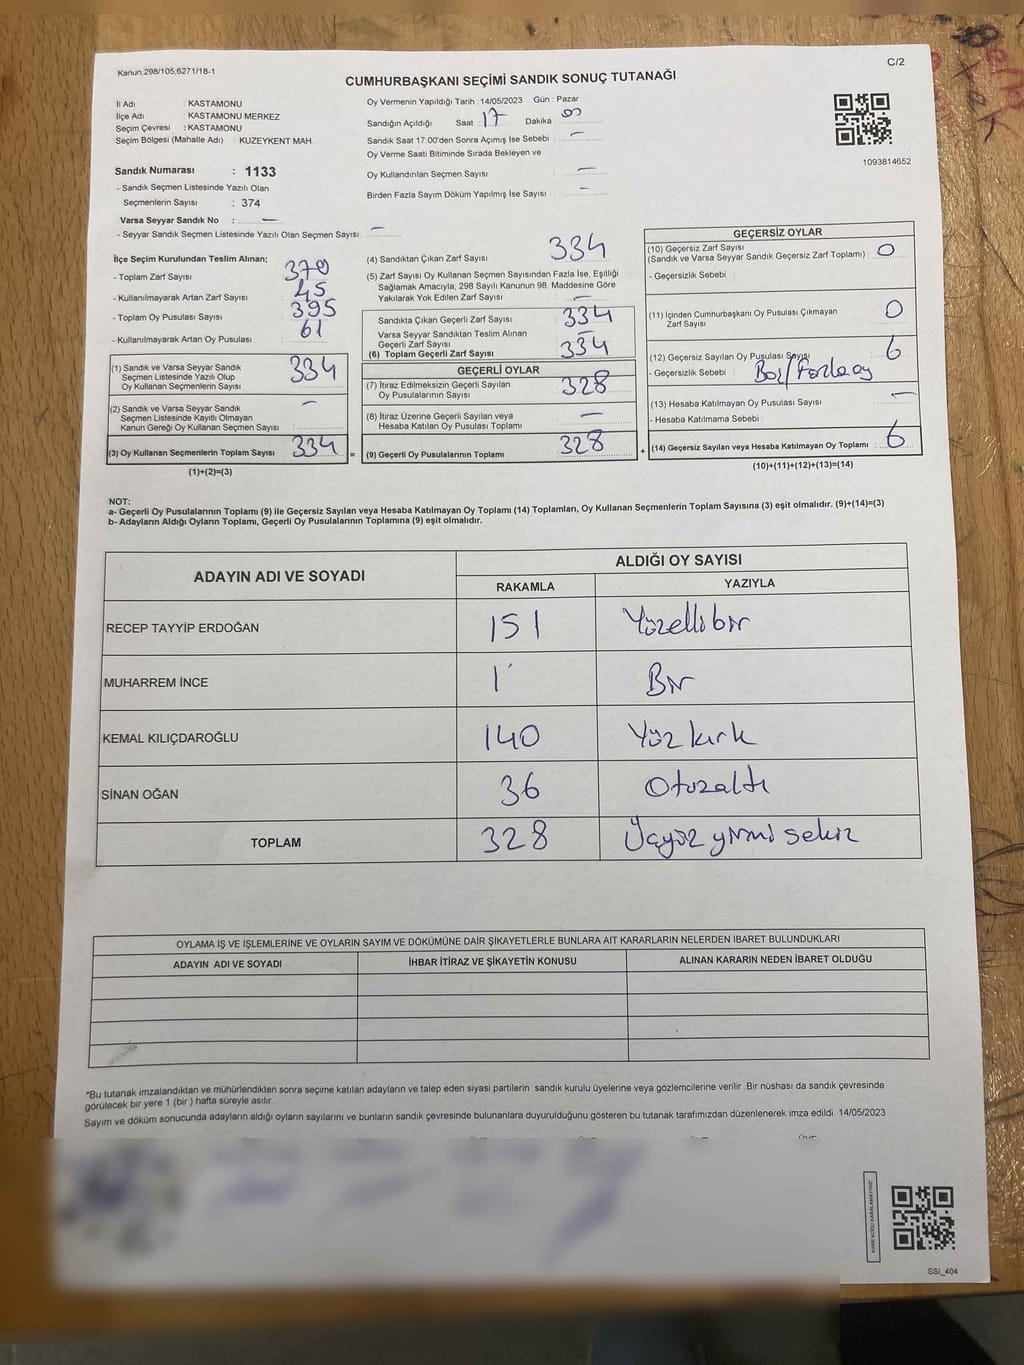 Kanun;298/105;6271/18-1
C/2
CUMHURBAŞKANI SEÇİMİ SANDIK SONUÇ TUTANAĞI
İl Adı : KASTAMONU
İlçe Adı : KASTAMONU MERKEZ
Seçim Çevresi : KASTAMONU
Seçim Bölgesi (Mahalle Adı) : KUZEYKENT MAH.
Oy Vermenin Yapıldığı Tarih :14/05/2023 Gün : Pazar
Sandığın Açıldığı Saat 17 Dakika : 00
Sandık Saat 17:00'den Sonra Açılmış İse Sebebi : —
Oy Verme Saati Bitiminde Sırada Bekleyen ve
Oy Kullandırılan Seçmen Sayısı : —
Birden Fazla Sayım Döküm Yapılmış İse Sayısı : —
1093814652
Sandık Numarası : 1133
- Sandık Seçmen Listesinde Yazılı Olan
Seçmenlerin Sayısı : 374
Varsa Seyyar Sandık No : —
- Seyyar Sandık Seçmen Listesinde Yazılı Olan Seçmen Sayısı: —
İlçe Seçim Kurulundan Teslim Alınan;
- Toplam Zarf Sayısı : 379
- Kullanılmayarak Artan Zarf Sayısı : 45
- Toplam Oy Pusulası Sayısı : 395
- Kullanılmayarak Artan Oy Pusulası : 61
(1) Sandık ve Varsa Seyyar Sandık
Seçmen Listesinde Yazılı Olup
Oy Kullanan Seçmenlerin Sayısı : 334
(2) Sandık ve Varsa Seyyar Sandık
Seçmen Listesinde Kayıtlı Olmayan
Kanun Gereği Oy Kullanan Seçmen Sayısı : —
(3) Oy Kullanan Seçmenlerin Toplam Sayısı : 334 =
(1)+(2)=(3)
(4) Sandıktan Çıkan Zarf Sayısı : 334
(5) Zarf Sayısı Oy Kullanan Seçmen Sayısından Fazla İse, Eşitliği
Sağlamak Amacıyla, 298 Sayılı Kanunun 98. Maddesine Göre
Yakılarak Yok Edilen Zarf Sayısı : —
Sandıkta Çıkan Geçerli Zarf Sayısı : 334
Varsa Seyyar Sandıktan Teslim Alınan
Geçerli Zarf Sayısı : —
(6) Toplam Geçerli Zarf Sayısı : 334
GEÇERLİ OYLAR
(7) İtiraz Edilmeksizin Geçerli Sayılan
Oy Pusulasının Sayısı : 328
(8) İtiraz Üzerine Geçerli Sayılan veya
Hesaba Katılan Oy Pusulası Toplamı : —
(9) Geçerli Oy Pusulalarının Toplamı : 328 +
GEÇERSİZ OYLAR
(10) Geçersiz Zarf Sayısı
(Sandık ve Varsa Seyyar Sandık Geçersiz Zarf Toplamı) : 0
- Geçersizlik Sebebi :
(11) İçinden Cumhurbaşkanı Oy Pusulası Çıkmayan
Zarf Sayısı : 0
(12) Geçersiz Sayılan Oy Pusulası Sayısı : 6
- Geçersizlik Sebebi : Boş/Fazla oy
(13) Hesaba Katılmayan Oy Pusulası Sayısı : —
- Hesaba Katılmama Sebebi :
(14) Geçersiz Sayılan veya Hesaba Katılmayan Oy Toplamı : 6
(10)+(11)+(12)+(13)=(14)
NOT:
a- Geçerli Oy Pusulalarının Toplamı (9) ile Geçersiz Sayılan veya Hesaba Katılmayan Oy Toplamı (14) Toplamları, Oy Kullanan Seçmenlerin Toplam Sayısına (3) eşit olmalıdır. (9)+(14)=(3)
b- Adayların Aldığı Oyların Toplamı, Geçerli Oy Pusulalarının Toplamına (9) eşit olmalıdır.
ADAYIN ADI VE SOYADI
ALDIĞI OY SAYISI
RAKAMLA YAZIYLA
RECEP TAYYİP ERDOĞAN 151 Yüzellibir
MUHARREM İNCE 1 Bir
KEMAL KILIÇDAROĞLU 140 Yüzkırk
SİNAN OĞAN 36 Otuzaltı
TOPLAM 328 Üçyüz yirmi sekiz
OYLAMA İŞ VE İŞLEMLERİNE VE OYLARIN SAYIM VE DÖKÜMÜNE DAİR ŞİKAYETLERLE BUNLARA AİT KARARLARIN NELERDEN İBARET BULUNDUKLARI
ADAYIN ADI VE SOYADI İHBAR İTİRAZ VE ŞİKAYETİN KONUSU ALINAN KARARIN NEDEN İBARET OLDUĞU
*Bu tutanak imzalandıktan ve mühürlendikten sonra seçime katılan adayların ve talep eden siyasi partilerin sandık kurulu üyelerine veya gözlemcilerine verilir .Bir nüshası da sandık çevresinde
görülecek bir yere 1 (bir ) hafta süreyle asılır.
Sayım ve döküm sonucunda adayların aldığı oyların sayılarını ve bunların sandık çevresinde bulunanlara duyurulduğunu gösteren bu tutanak tarafımızdan düzenlenerek imza edildi. 14/05/2023
KARE KODU KARALAMAYINIZ!
SSI_404